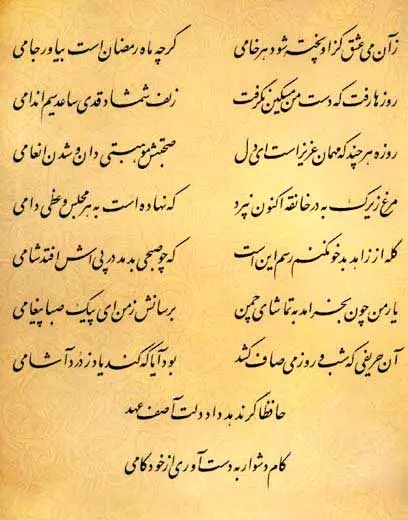 زآن می عشق کزاو پخته شود هر خامی گرچه ماه رمضان است بیاور جامی
روزها رفت که دست من مسکین نگرفت زلف شمشاد قدی ساعد سیم اندامی
روزه هرچند که مهمان عزیز است ای دل صحبتش موهبتی دان و شدن انعامی
مرغ زیرک به در خانقه اکنون نپرد که نهاده است به هر مجلس وعظی دامی
گله از زاهد بدخو نکنم رسم این است که چو صبحی بدمد در پی اش افتد شامی
یار من چون بخرامد به تماشای چمن برسانش ز من ای پیک صبا پیغامی
آن حریفی که شب و روز می صاف کشد بود آیا که کند یاد ز دردآشامی
حافظا گر ندهد داد دلت آصف عهد
کام دشوار به دست آوری از خودکامی